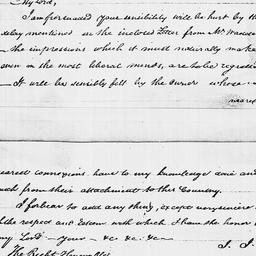 My Lord,
I am persuaded your sensibility will be hurt by the
delay mentioned in the inclosed Letter from Mr.
the impressions which it must naturally make
even in the most liberal minds, are to be regretted
It will be sensibly felt by the owner whose
nearest
nearest connexions have to my knowledge done and
much from their attachment to this Country.
I forbear to add any thing, except
the respect and Esteem with which I have the honor
my Lord - your - &c. &c. &c.
J. J.
The Right Honorable